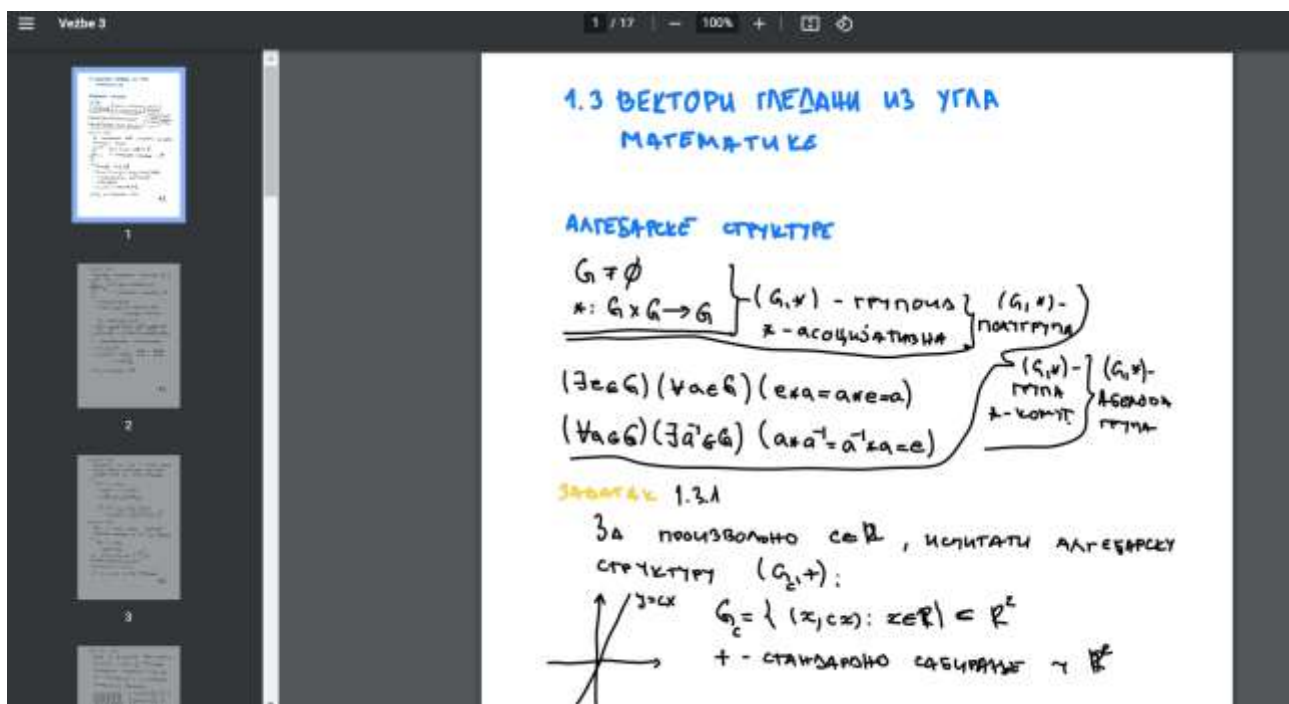 Vežbe 3
1 / 17
100%
1
2
3
1.3 ВЕКТОРИ ГЛЕДАНИ ИЗ УГЛА
МАТЕМАТИКЕ
АЛГЕБАРСКЕ СТРУКТУРЕ
G ≠ ∅
*: G × G → G
(G,*) - групоид
* - асоцијативна
(G,*) -
полугрупа
(∃e∈G)(∀a∈G)(e*a=a*e=a)
(∀a∈G)(∃a⁻¹∈G)(a*a⁻¹=a⁻¹*a=e)
(G,*) -
група
* - комут.
(G,*) -
Абелова
група
ЗАДАТАК 1.3.1
За произвољно c∈ℝ, испитати алгебарску
структуру (G_c,+):
y=cx
G_c = { (x,cx): x∈ℝ} ⊂ ℝ²
+ - стандардно сабирање у ℝ²